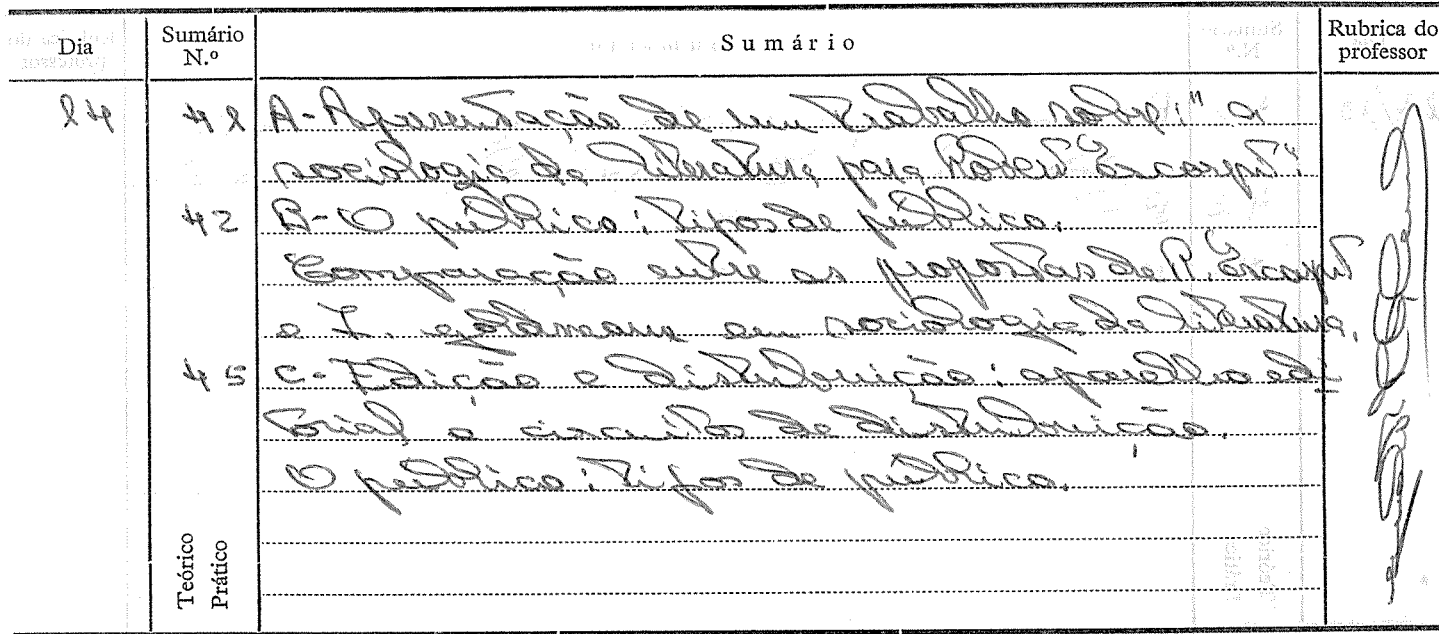 Dia
Sumário N.º
Sumário
Rubrica do professor
24 41 A - Apresentação de um trabalho sobre: "a
sociologia da literatura para Robert Escarpit".
42 B - O público: tipos de público.
Comparação entre as propostas de R. Escarpit
e L. goldmann em sociologia da literatura.
45 C - Edição e distribuição: aparelho edi
torial e circuitos de distribuição.
O público: tipos de público.
Teórico
Prático